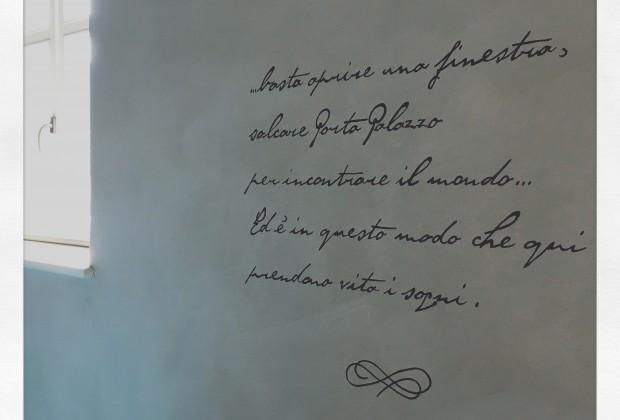 ...basta aprire una finestra,
salcare Porta Palazzo
per incontrare il mondo...
Ed è in questo modo che qui
prendono vita i sogni.